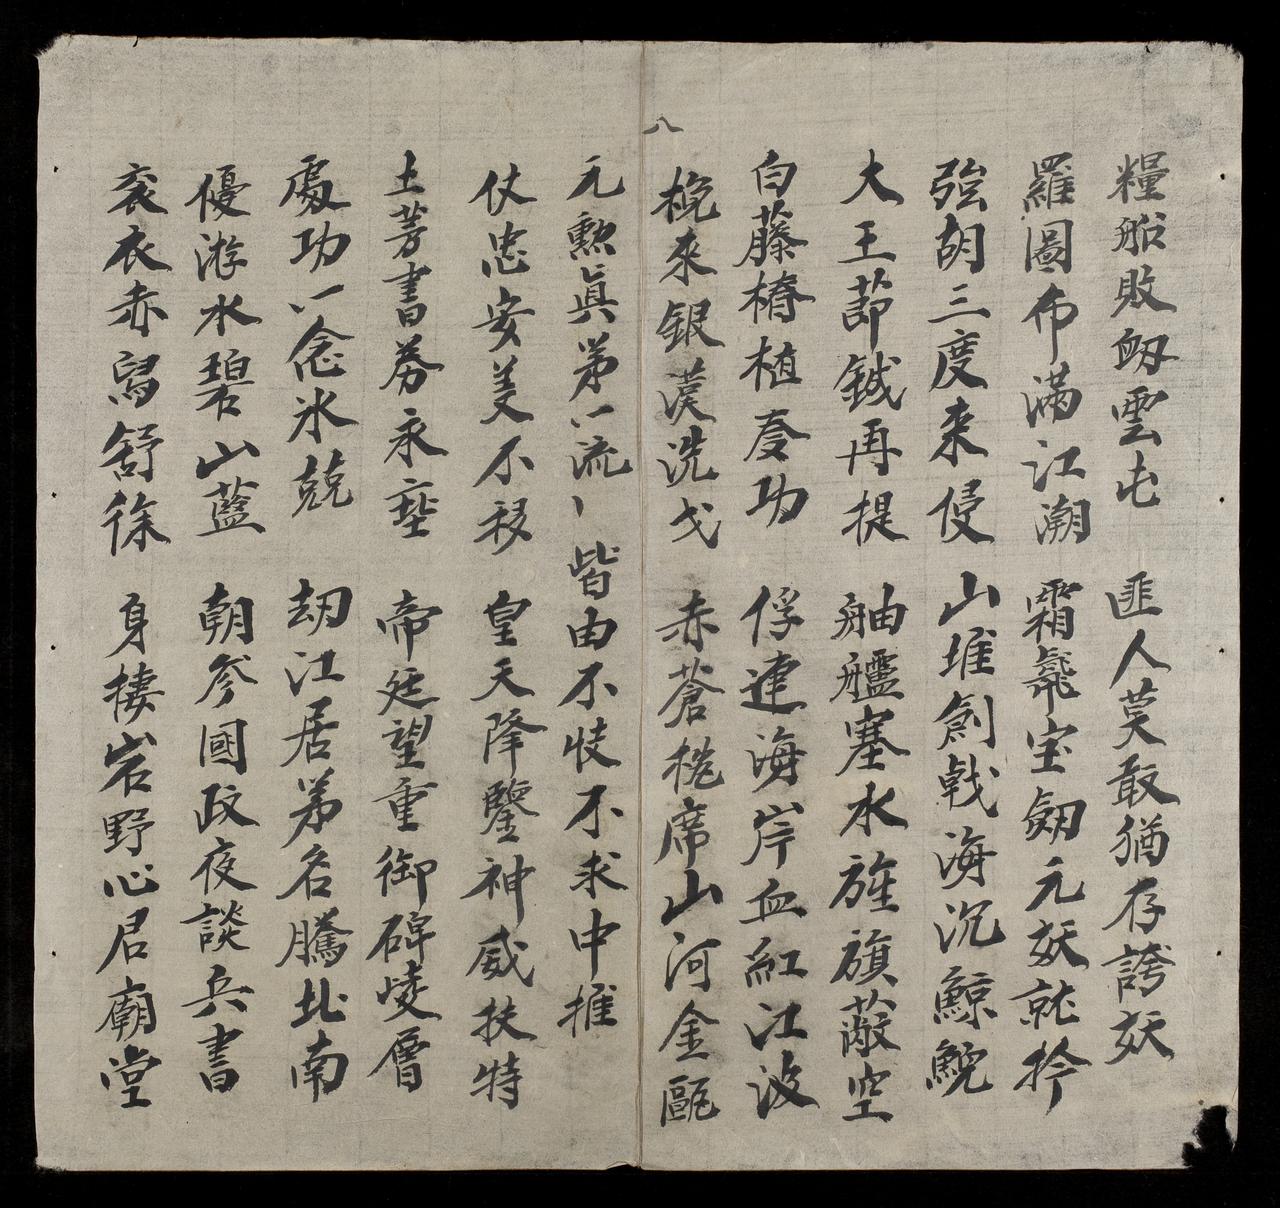 糧船敗衂雲屯 匪人莫敢猶存誇妖
羅圖布滿江潮 霜髦宝劒元妖就扲
強胡三度来侵 山堆劍戟海沉鯨鯢
大王節鉞再提 舳艫塞水旌旗蔽空
白藤樁植奪功 俘連海岸血紅江波
八
挽來銀漢洗戈 赤蒼桄席山河金甌
元勲眞第一流 皆由不忮不求中推
仗忠安美不移 皇天降鑒神威扶特
土芳書券永垂 帝廷望重御碑崚層
處功一念氷兢 劫江居第名騰北南
優游水碧山藍 朝參國政夜談兵書
衮衣赤舄舒徐 身棲岩野心居廟堂